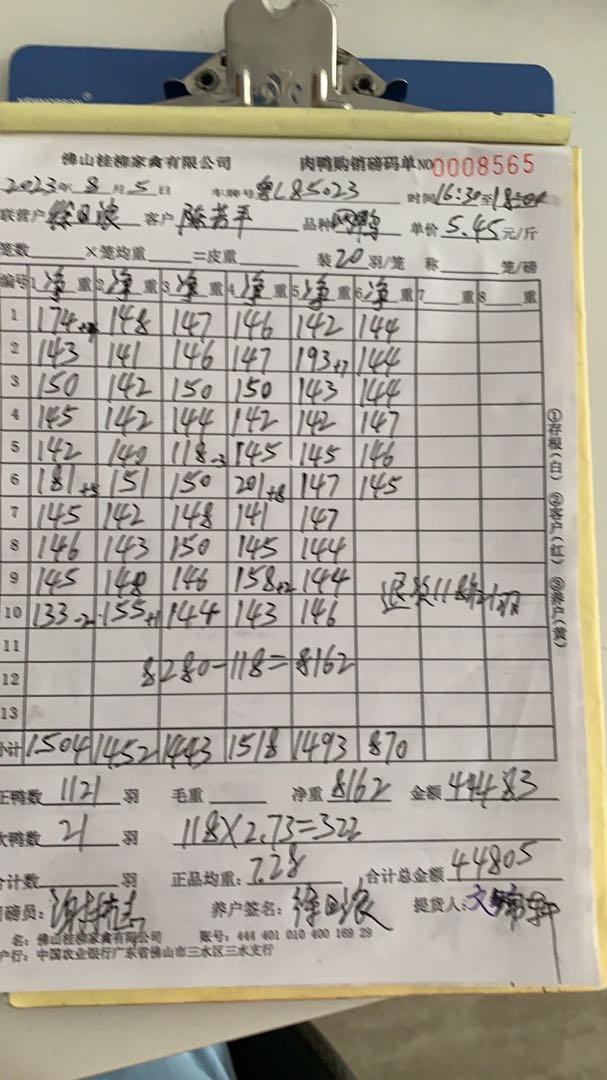 佛山桂柳家禽有限公司 肉鸭购销磅码单NO0008565
2023年8月5日 车牌号粤L85023 时间16:30至
联营户 客户 陈若平 品种 单价5.45元/斤
笼数 ×笼均重 =皮重 装20羽/笼 称 笼/磅
编号 1净重 2净重 3净重 4净重 5净重 6净重 7 重 8 重
1 174 148 147 146 142 144
2 143 141 146 147 193+7 144
3 150 142 150 150 143 144
4 145 142 144 142 142 147
5 142 140 118-3 145 145 146
6 181+5 151 150 201+8 147 145
7 145 142 148 141 147
8 146 143 150 145 144
9 145 148 146 158+2 144
10 133-2 155+1 144 143 146
11
12 8280-118=8162
13
小计 1504 1452 1443 1518 1493 870
①存根(白) ②客户(红) ③养户(黄)
正鸭数 1121 羽 毛重 净重 8162 金额 44483
次鸭数 21 羽 118×2.73=322
合计数 羽 正品均重: 7.28 ,合计总金额 44805
司磅员: 养户签名: 提货人:
名: 佛山桂柳家禽有限公司 账号: 444 401 010 400 169 29
户行: 中国农业银行广东省佛山市三水区三水支行